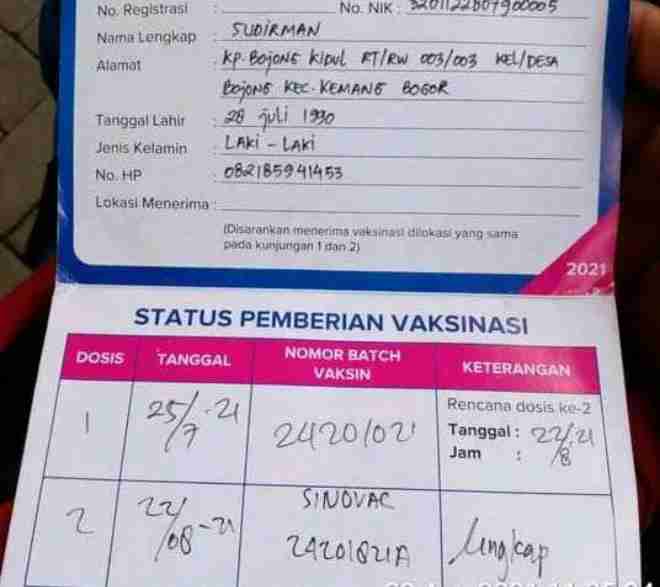 No. Registrasi : No. NIK :
Nama Lengkap : SUDIRMAN
Alamat : KP. BOJONG KIDUL RT/RW 003/003 KEL/DESA
BOJONG KEC. KEMANG BOGOR
Tanggal Lahir : 28 juli 1990
Jenis Kelamin : LAKI - LAKI
No. HP : 082185941453
Lokasi Menerima :
(Disarankan menerima vaksinasi dilokasi yang sama
pada kunjungan 1 dan 2)
2021
STATUS PEMBERIAN VAKSINASI
DOSIS TANGGAL NOMOR BATCH VAKSIN KETERANGAN
1 25/7-21 24201021 Rencana dosis ke-2
Tanggal : 22/8.21
Jam :
2 22/08-21 SINOVAC
24201821A lengkap